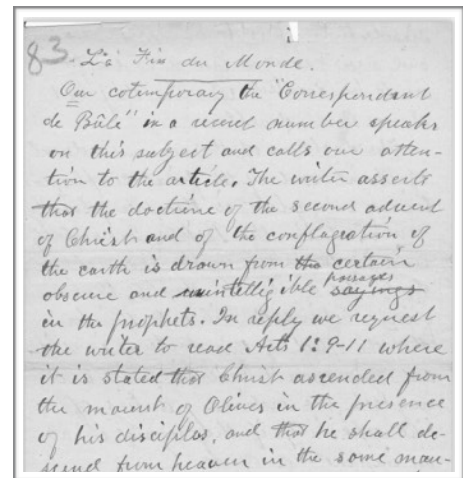 83. La Fin du Monde.
Our cotemporary the "Correspondent
de Bâle" in a recent number speaks
on this subject and calls our atten-
tion to the article. The writer asserts
that the doctrine of the second advent
of Christ and of the conflagration of
the earth is drawn from the certain
obscure and unintelligible sayings passages
in the prophets. In reply we request
the writer to read Acts 1:9-11 where
it is stated that Christ ascended from
the mount of Olives in the presence
of his disciples, and that he shall de-
scend from heaven in the same man-